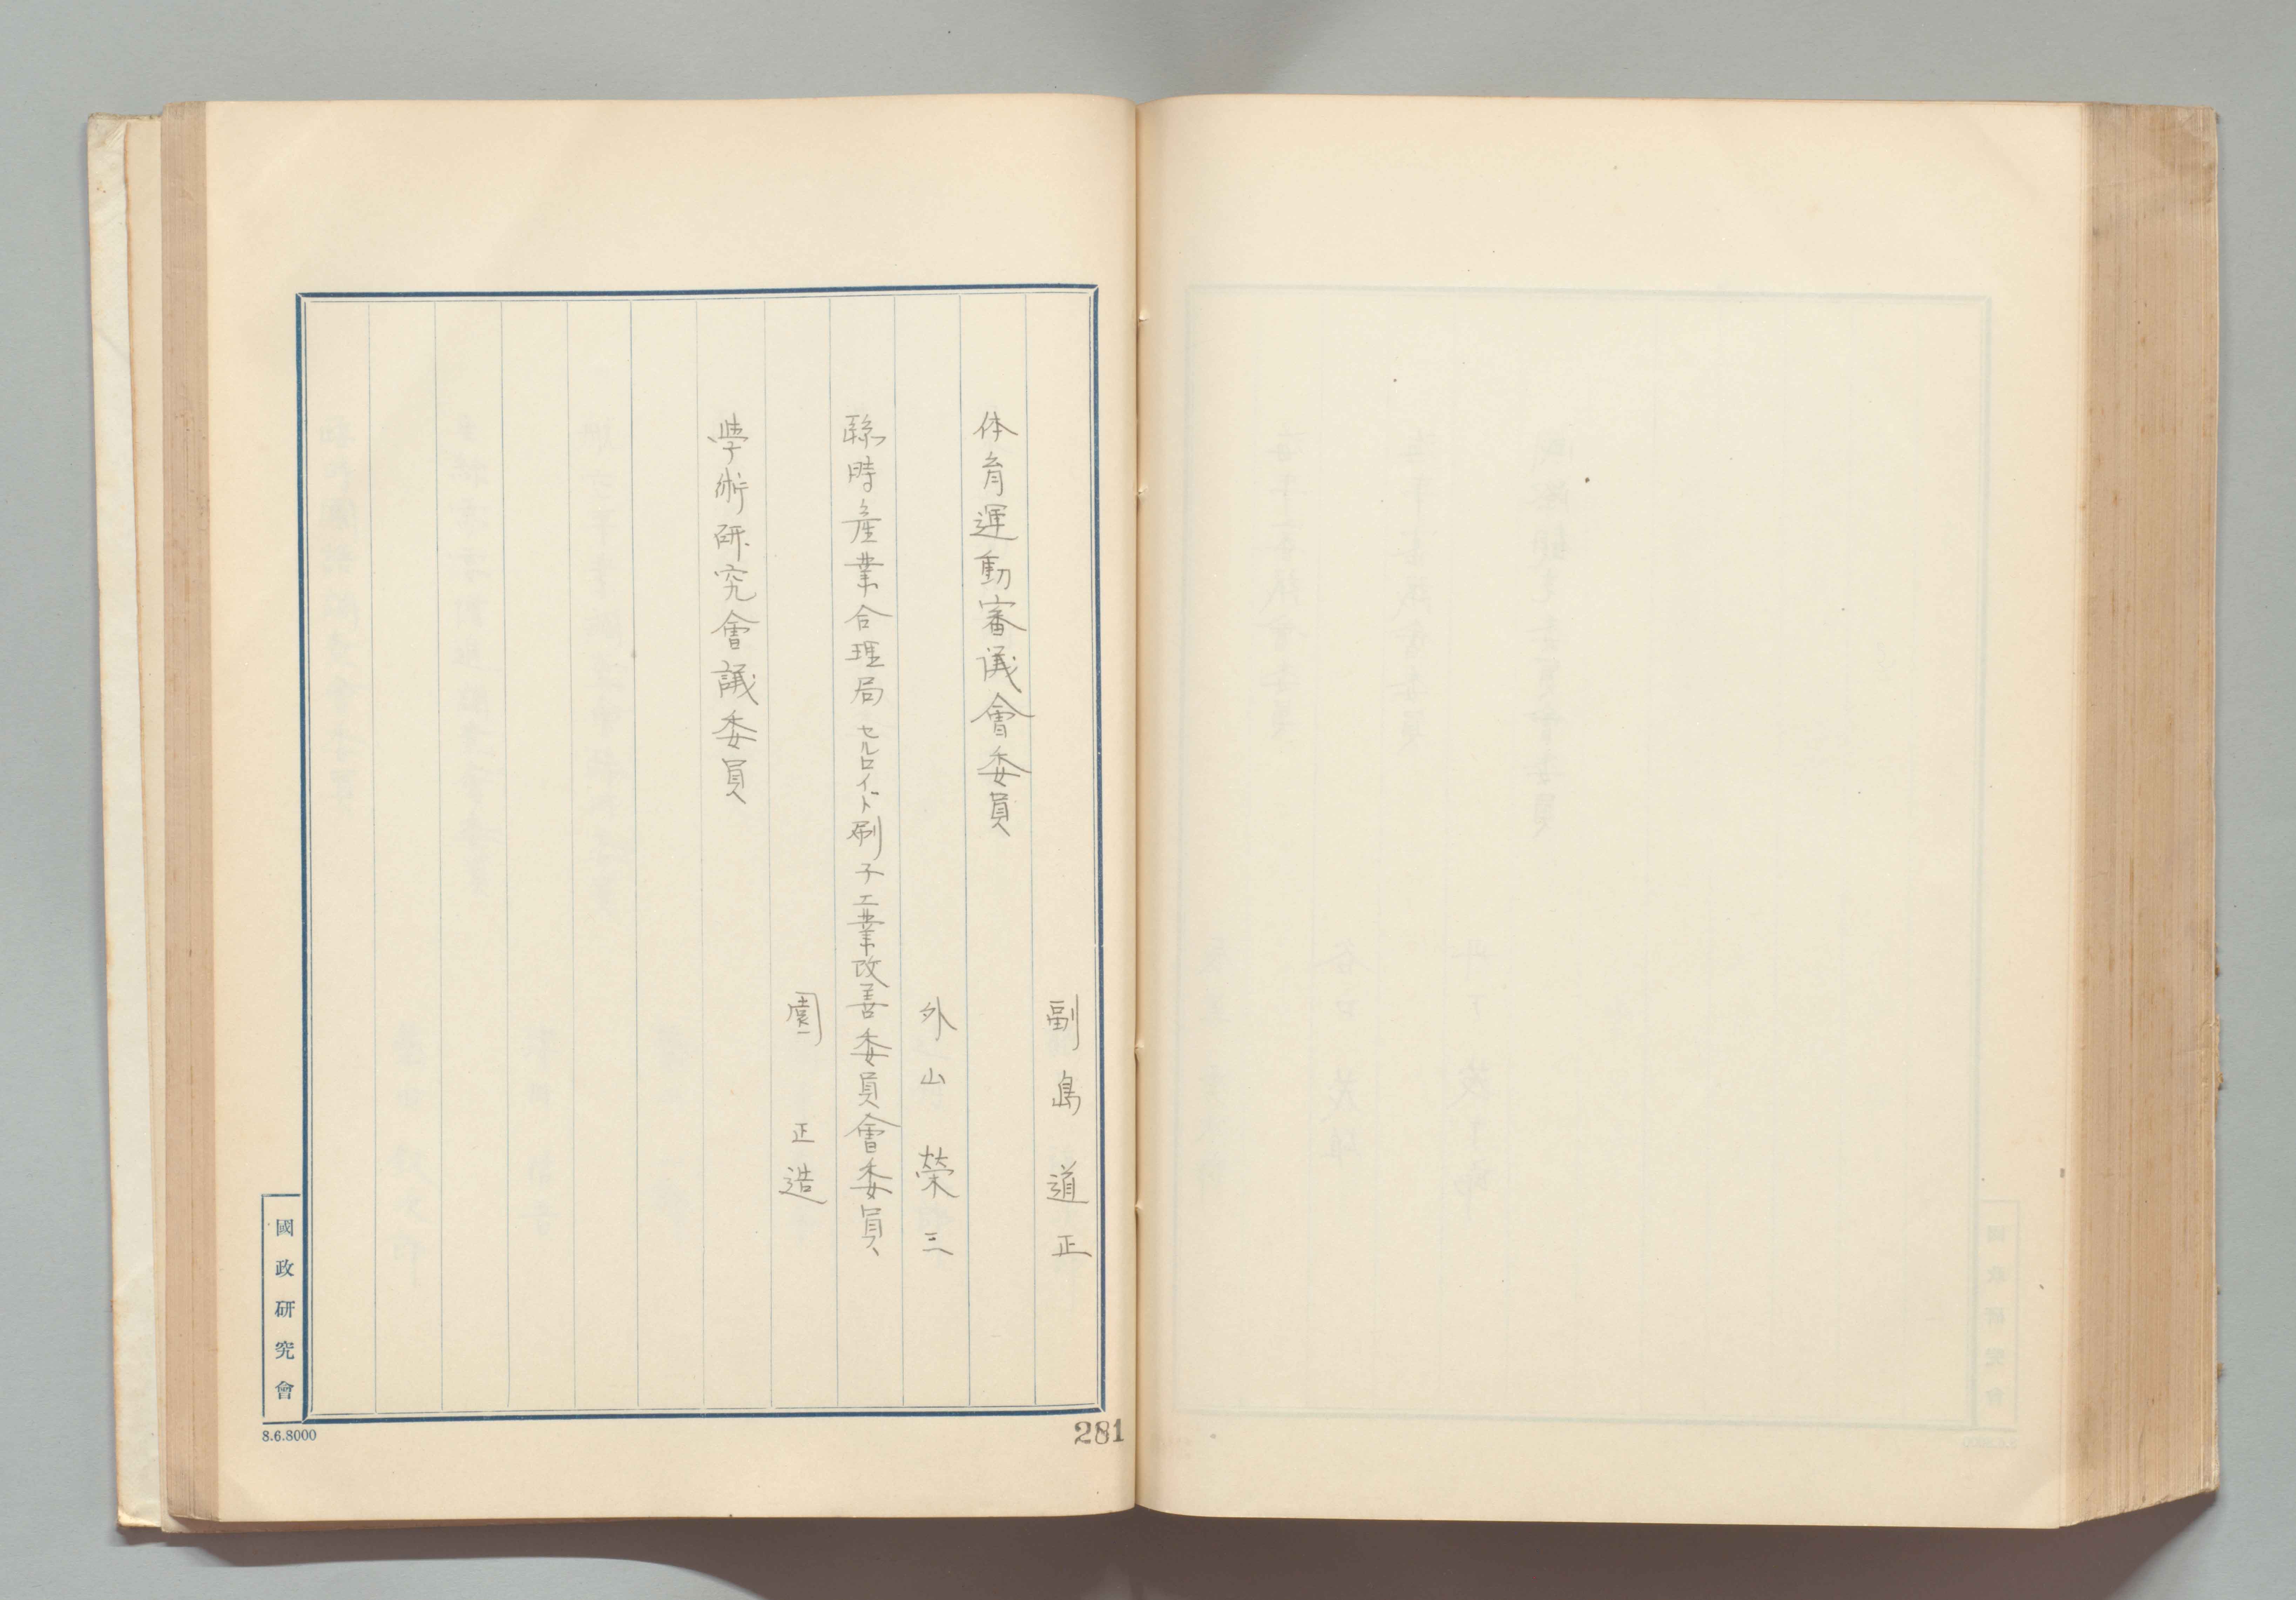 副島道正
体育運動審議會委員
外山榮三
臨時産業合理局セルロイド刷子工業改善委員會委員
園正造
學術研究會議委員
國政研究會
8.6.8000
281